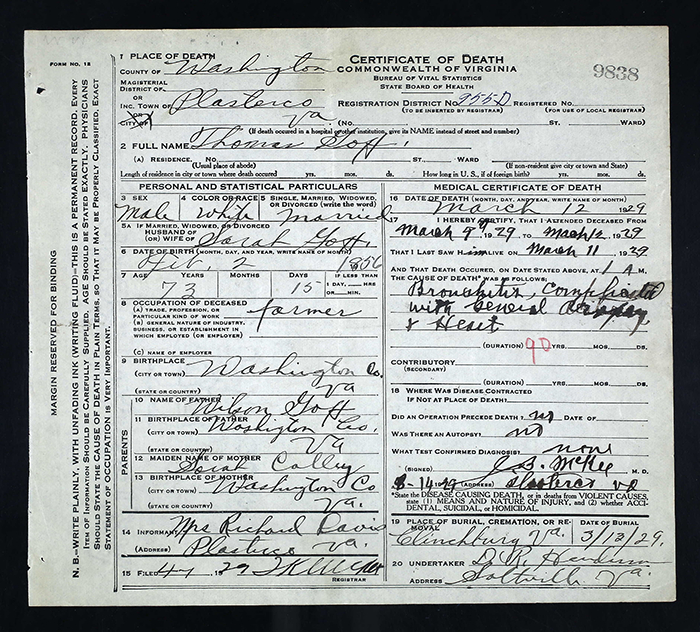 FORM NO. 12
MARGIN RESERVED FOR BINDING
N. B.—WRITE PLAINLY, WITH UNFADING INK (WRITING FLUID)—THIS IS A PERMANENT RECORD. EVERY
ITEM OF INFORMATION SHOULD BE CAREFULLY SUPPLIED. AGE SHOULD BE STATED EXACTLY. PHYSICIANS
SHOULD STATE THE CAUSE OF DEATH IN PLAIN TERMS, SO THAT IT MAY BE PROPERLY CLASSIFIED. EXACT
STATEMENT OF OCCUPATION IS VERY IMPORTANT.
1 PLACE OF DEATH
COUNTY OF Washington
MAGISTERIAL
DISTRICT OF
OR
INC. TOWN OF Plasterco
OR
CITY OF Va.
CERTIFICATE OF DEATH
COMMONWEALTH OF VIRGINIA
BUREAU OF VITAL STATISTICS
STATE BOARD OF HEALTH
9838
REGISTRATION DISTRICT NO. 955D REGISTERED NO.
(TO BE INSERTED BY REGISTRAR) (FOR USE OF LOCAL REGISTRAR)
(No. ST. WARD)
(If death occurred in a hospital or other institution, give its NAME instead of street and number)
2 FULL NAME Thomas Goff.
(A) RESIDENCE. No. ST. WARD
(Usual place of abode) (If non-resident give city or town and State)
Length of residence in city or town where death occurred yrs. mos. ds. How long in U. S., if of foreign birth? yrs. mos. ds.
PERSONAL AND STATISTICAL PARTICULARS
3 SEX
Male
4 COLOR OR RACE
White
5 SINGLE, MARRIED, WIDOWED,
OR DIVORCED (write the word)
Married
5A IF MARRIED, WIDOWED, OR DIVORCED
HUSBAND OF
(OR) WIFE OF Sarah Goff.
6 DATE OF BIRTH (MONTH, DAY, AND YEAR, WRITE NAME OF MONTH)
2 1856
7 AGE YEARS MONTHS DAYS IF LESS THAN
73 1 15 1 DAY, HRS
OR MIN.
8 OCCUPATION OF DECEASED
(A) TRADE, PROFESSION, OR
PARTICULAR KIND OF WORK farmer
(B) GENERAL NATURE OF INDUSTRY,
BUSINESS, OR ESTABLISHMENT IN
WHICH EMPLOYED (OR EMPLOYER)
(C) NAME OF EMPLOYER
9 BIRTHPLACE Washington Co.
(CITY OR TOWN)
(STATE OR COUNTRY) Va
PARENTS
10 NAME OF FATHER Wilson Goff
11 BIRTHPLACE OF FATHER Washington Co.
(CITY OR TOWN)
(STATE OR COUNTRY) Va
12 MAIDEN NAME OF MOTHER
Sarah Colley
13 BIRTHPLACE OF MOTHER
(CITY OR TOWN) Washington Co
(STATE OR COUNTRY) Va.
14 INFORMANT Mrs Richard Davis
(ADDRESS) Plasterco Va.
15 FILED 4-1 1929
REGISTRAR
MEDICAL CERTIFICATE OF DEATH
16 DATE OF DEATH (MONTH, DAY, AND YEAR, WRITE NAME OF MONTH)
March 12 1929
17 I HEREBY CERTIFY, THAT I ATTENDED DECEASED FROM
March 9th 1929 March 12 1929
THAT I LAST SAW Him LIVE ON March 11 1929
AND THAT DEATH OCCURRED, ON DATE STATED ABOVE, AT 1 A M.
Bronchitis, Complicated
with General Dropsy
& Heart
(DURATION) 90 YRS. MOS. DS.
CONTRIBUTORY
(SECONDARY)
(DURATION) YRS. MOS. DS.
18 WHERE WAS DISEASE CONTRACTED
IF NOT AT PLACE OF DEATH?
DID AN OPERATION PRECEDE DEATH? no DATE OF
WAS THERE AN AUTOPSY? no
WHAT TEST CONFIRMED DIAGNOSIS? none
(SIGNED) J. B. McKee M. D.
3-14 1929 (ADDRESS) Plasterco Va
*State the DISEASE CAUSING DEATH, or in deaths from VIOLENT CAUSES,
state (1) MEANS AND NATURE OF INJURY, and (2) whether ACCI-
DENTAL, SUICIDAL, or HOMICIDAL.
19 PLACE OF BURIAL, CREMATION, OR RE-
MOVAL DATE OF BURIAL
Clinchburg Va. 3/13/29.
20 UNDERTAKER D. R. Henderson
ADDRESS Saltville Va.